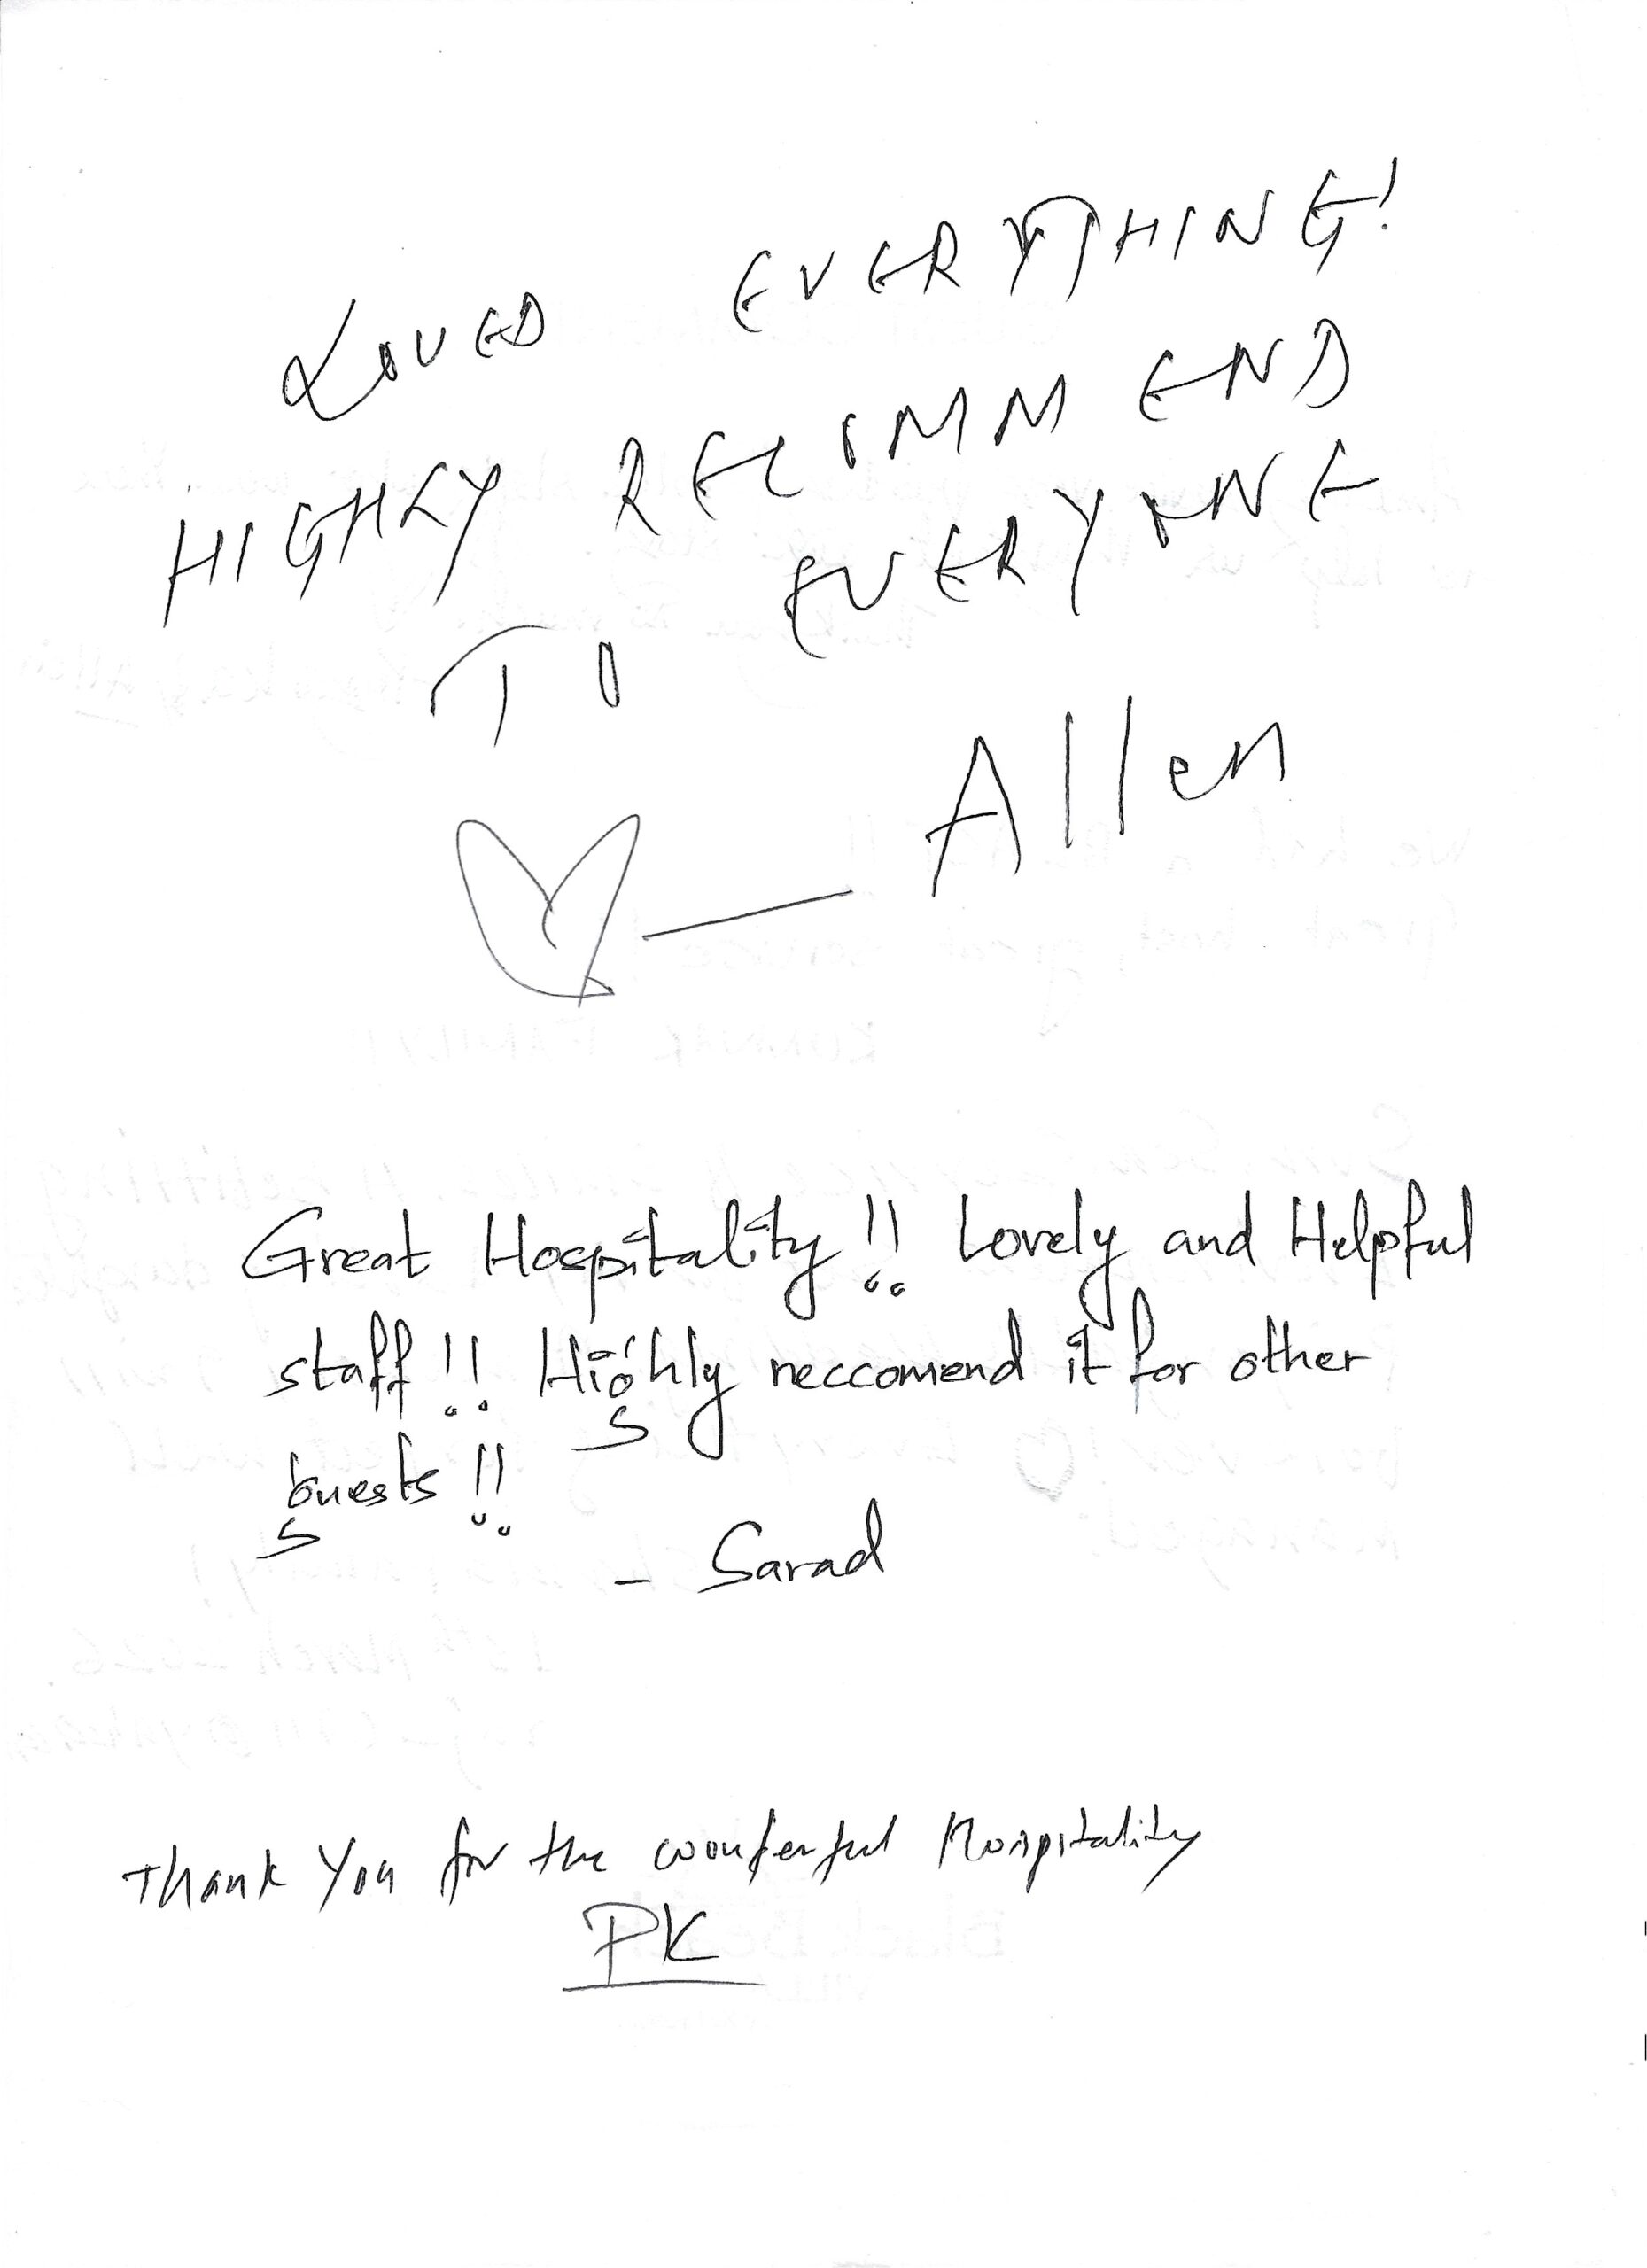 LOVED EVERYTHING!
HIGHLY RECOMMEND
TO EVERYONE
— Allen
Great Hospitality!! Lovely and Helpful
staff!! Highly reccomend it for other
guests!!
- Sarad
Thank You for the wonderful Hospitality
PK